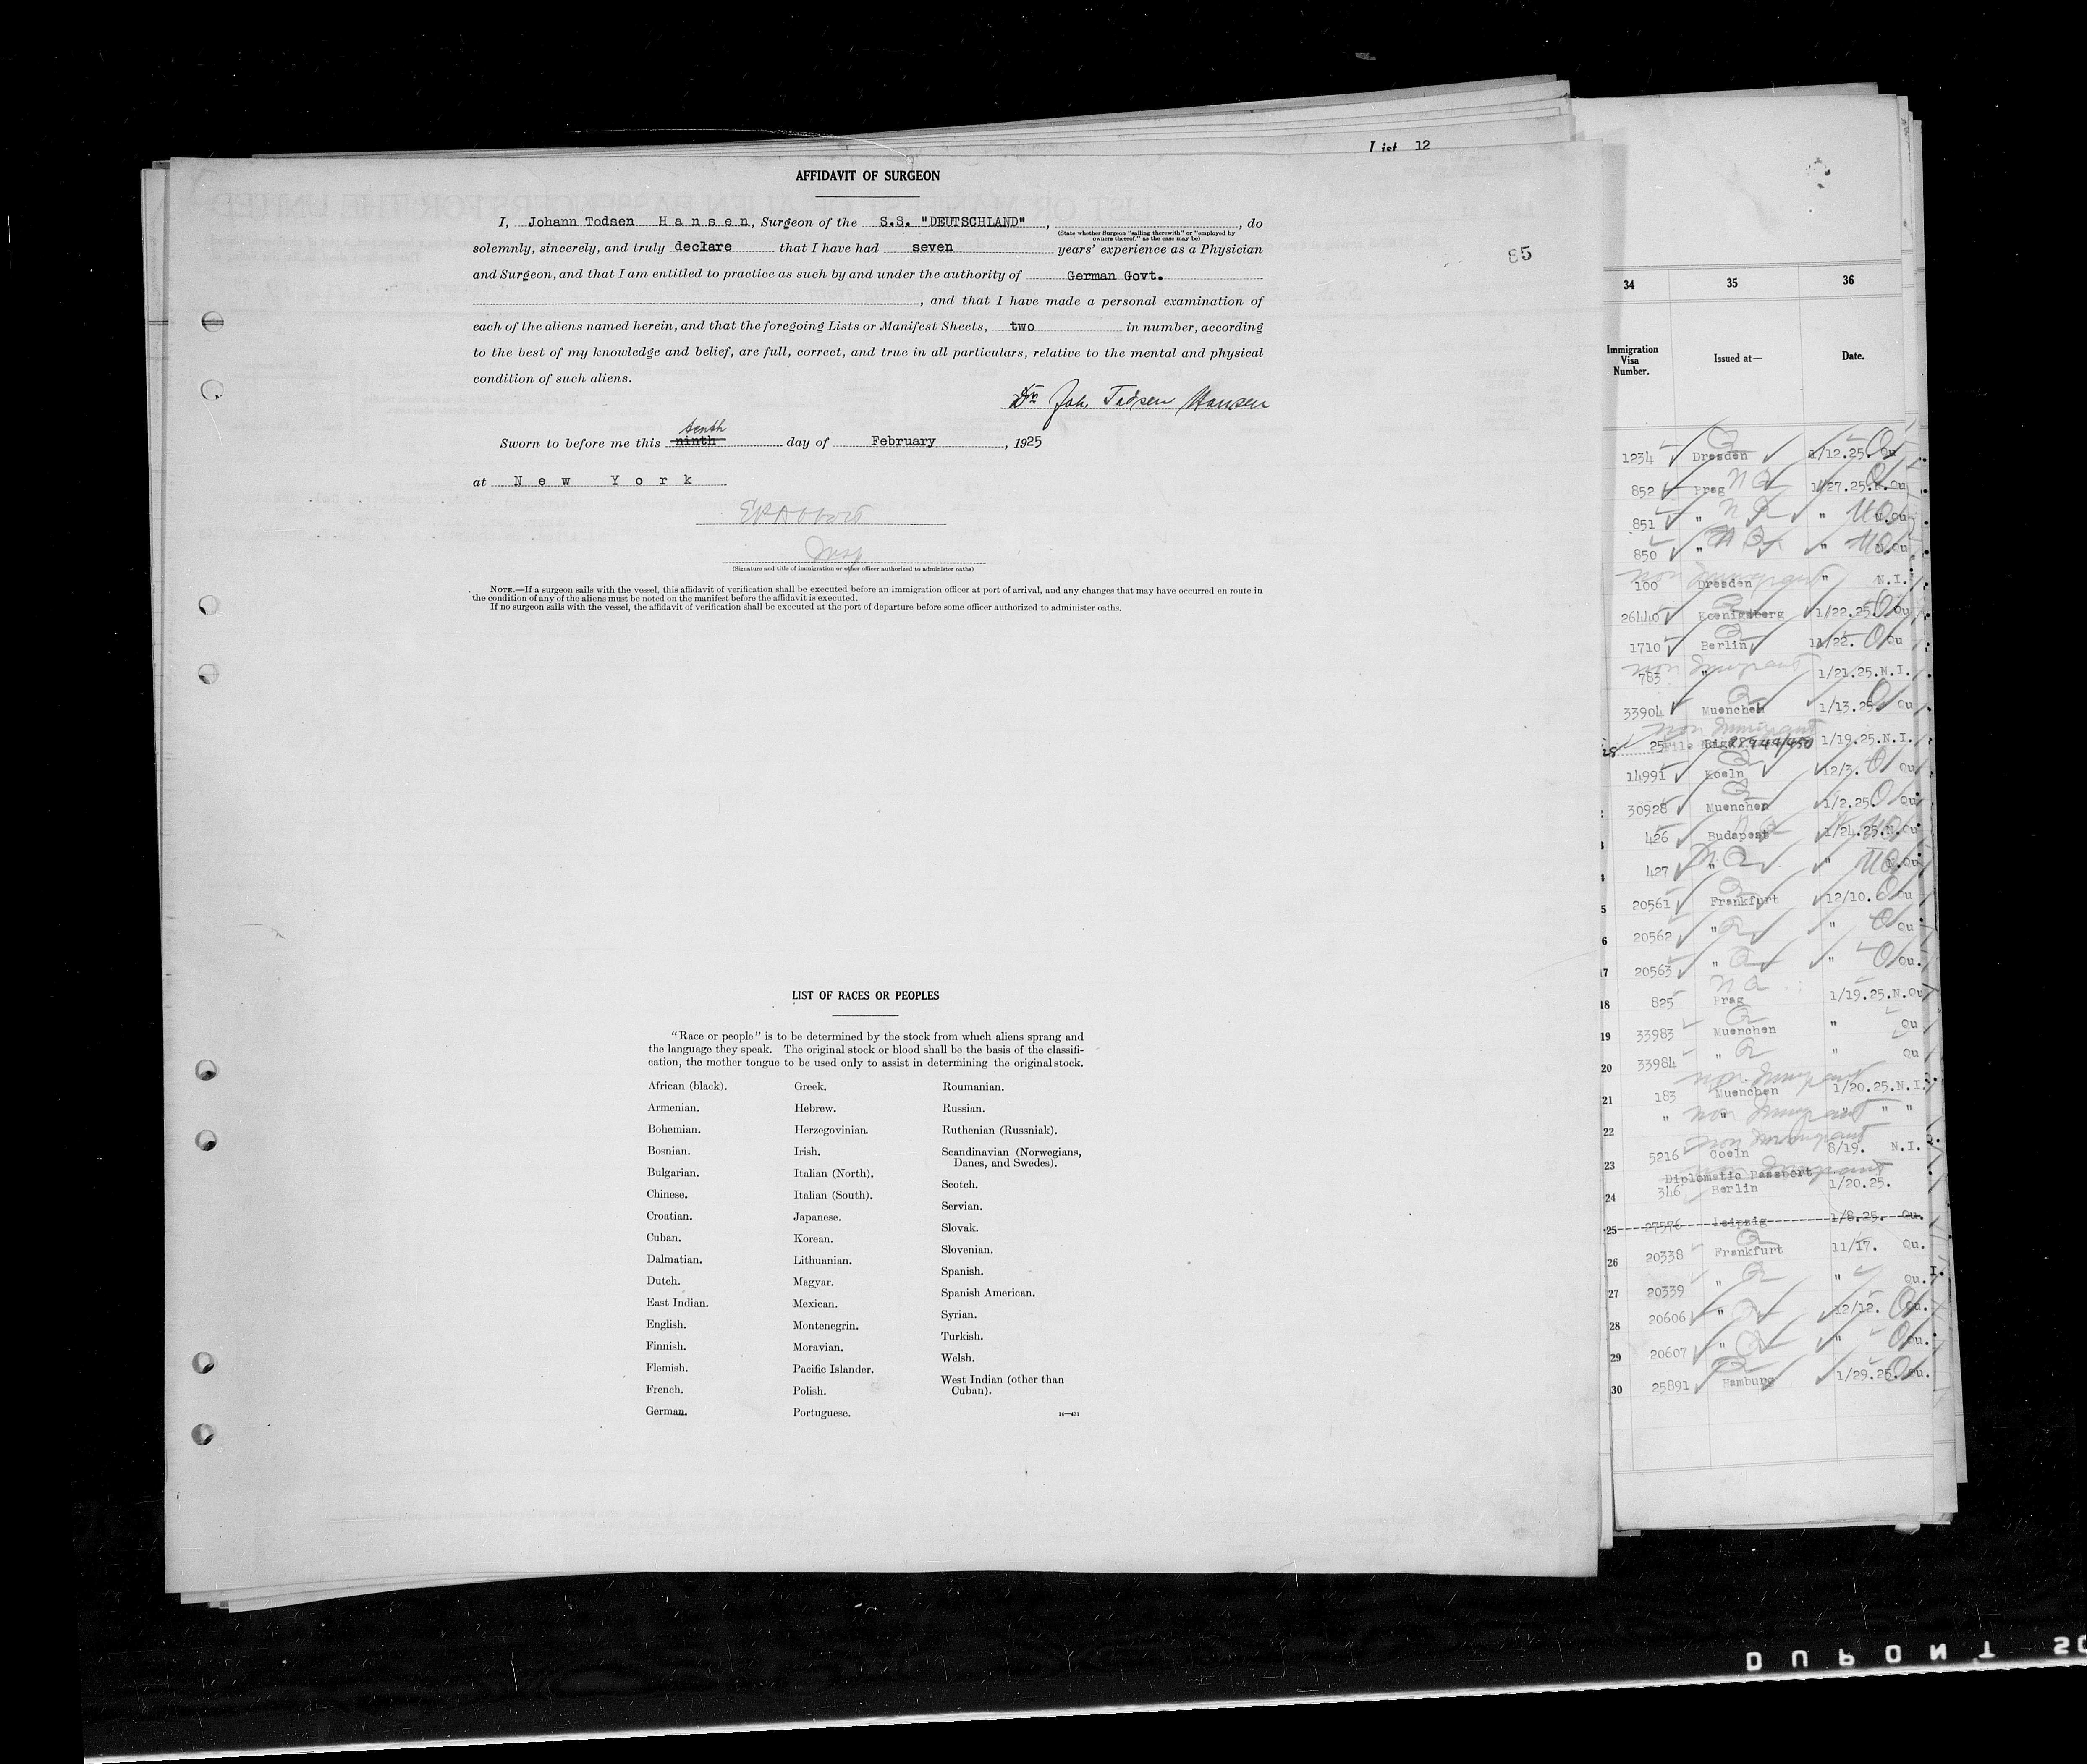 List 12
AFFIDAVIT OF SURGEON
I, Johann Todsen Hansen, Surgeon of the S.S. "DEUTSCHLAND", , do
(State whether Surgeon "sailing therewith" or "employed by
owners thereof," as the case may be)
solemnly, sincerely, and truly declare that I have had seven years' experience as a Physician
and Surgeon, and that I am entitled to practice as such by and under the authority of German Govt.
, and that I have made a personal examination of
each of the aliens named herein, and that the foregoing Lists or Manifest Sheets, two in number, according
to the best of my knowledge and belief, are full, correct, and true in all particulars, relative to the mental and physical
condition of such aliens.
Dr Joh. Todsen Hansen
tenth
Sworn to before me this ninth day of February, 1925
at New York
Insp
(Signature and title of immigration or other officer authorized to administer oaths)
NOTE.—If a surgeon sails with the vessel, this affidavit of verification shall be executed before an immigration officer at port of arrival, and any changes that may have occurred en route in
the condition of any of the aliens must be noted on the manifest before the affidavit is executed.
If no surgeon sails with the vessel, the affidavit of verification shall be executed at the port of departure before some officer authorized to administer oaths.
85
LIST OF RACES OR PEOPLES
"Race or people" is to be determined by the stock from which aliens sprang and
the language they speak. The original stock or blood shall be the basis of the classifi-
cation, the mother tongue to be used only to assist in determining the original stock.
African (black).
Armenian.
Bohemian.
Bosnian.
Bulgarian.
Chinese.
Croatian.
Cuban.
Dalmatian.
Dutch.
East Indian.
English.
Finnish.
Flemish.
French.
German.
Greek.
Hebrew.
Herzegovinian.
Irish.
Italian (North).
Italian (South).
Japanese.
Korean.
Lithuanian.
Magyar.
Mexican.
Montenegrin.
Moravian.
Pacific Islander.
Polish.
Portuguese.
Roumanian.
Russian.
Ruthenian (Russniak).
Scandinavian (Norwegians,
Danes, and Swedes).
Scotch.
Servian.
Slovak.
Slovenian.
Spanish.
Spanish American.
Syrian.
Turkish.
Welsh.
West Indian (other than
Cuban).
14—431
34 35 36
Immigration
Visa
Number.
Issued at—
Date.
1234 Dresden 1/12.25. Qu
852 Prag N Q 1/27.25.N.Qu
851 " N Q " N.Qu
850 " N Q " N.Qu
non Immigrant
100 Dresden " N.I.
26440 Koenigsberg 1/22.25. Qu
1710 Berlin 11/22. Qu
non Immigrant
783 " 1/21.25.N.I.
33904 Muenchen 1/13.25. Qu
non Immigrant
25 1/19.25.N.I.
14991 Koeln 12/3. Qu
30928 Muenchen 1/2.25. Qu
426 Budapest 1/24.25.N.Qu
427 " " N.Qu
20561 Frankfurt 12/10. Qu
20562 " " Qu
20563 " " Qu.
18 825 Prag 1/19.25.N.Qu
19 33983 Muenchen " Qu
20 33984 " " Qu
non Immigrant
21 183 Muenchen 1/20.25.N.I.
22 " non Immigrant " "
non Immigrant
23 5216 Coeln 8/19. N.I.
Diplomatic Passport
24 346 Berlin 1/20.25.
25 27576 Leipzig 1/8.25. Qu.
26 20338 Frankfurt 11/17. Qu.
27 20339 " " Qu.
28 20606 " 12/12. Qu.
29 20607 " " Qu.
30 25891 Hamburg 1/29.25. Qu.
DUPONT